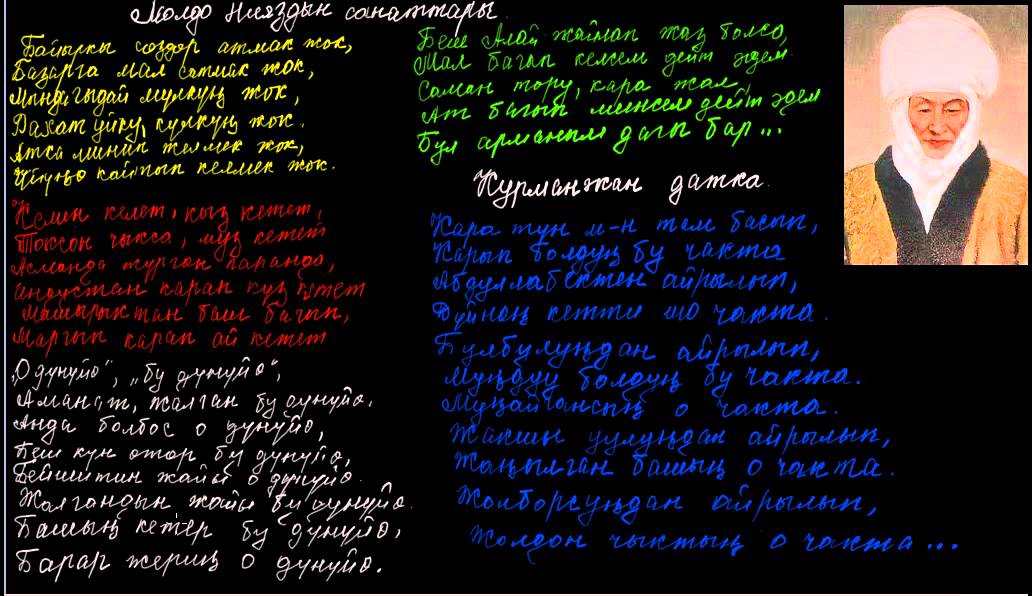 Молдо Нияздын санаттары.
Байыркы сөздөр атмак жок,
Базарга мал сатмак жок,
Мындагыдай мүлкүң жок,
Рахат уйку, күлкүң жок.
Атка минип желмек жок,
Үйүңө кайтып келмек жок.
Келин келет, кыз кетет,
Токсон чыкса, муз кетет
Асманда турган каранда,
Индустан карап куз кетет
Машырыктан баш багып,
Маргып карап ай кетет
„О дүнүйө", „бу дүнүйө",
Аманат, жалган бу дүнүйө.
Анда болбос о дүнүйө,
Беш күн өтөр бу дүнүйө,
Бейиштин жайы о дүнүйө.
Жалгандын жайы бу дүнүйө.
Башың кетер бу дүнүйө,
Барар жериң о дүнүйө.
Беш Алай жайлап жаз болсо,
Мал багып келсем дейт элем
Саман тору, кара жал,
Ат багып минсем дейт элем
Бул арманым дагы бар...
Курманжан датка.
Кара түн м-н там басып,
Карып болдуң бу чакта
Абдуллабектен айрылып,
Дүйнөң кетти ио чакта.
Булбулуңдан айрылып,
Муңдуу болдуң бу чакта.
Муңайгансың о чакта.
Жакшы уулуңдан айрылып,
Жаңылган башың о чакта.
Жолборсуңдан айрылып,
Жолдон чыктың о чакта...